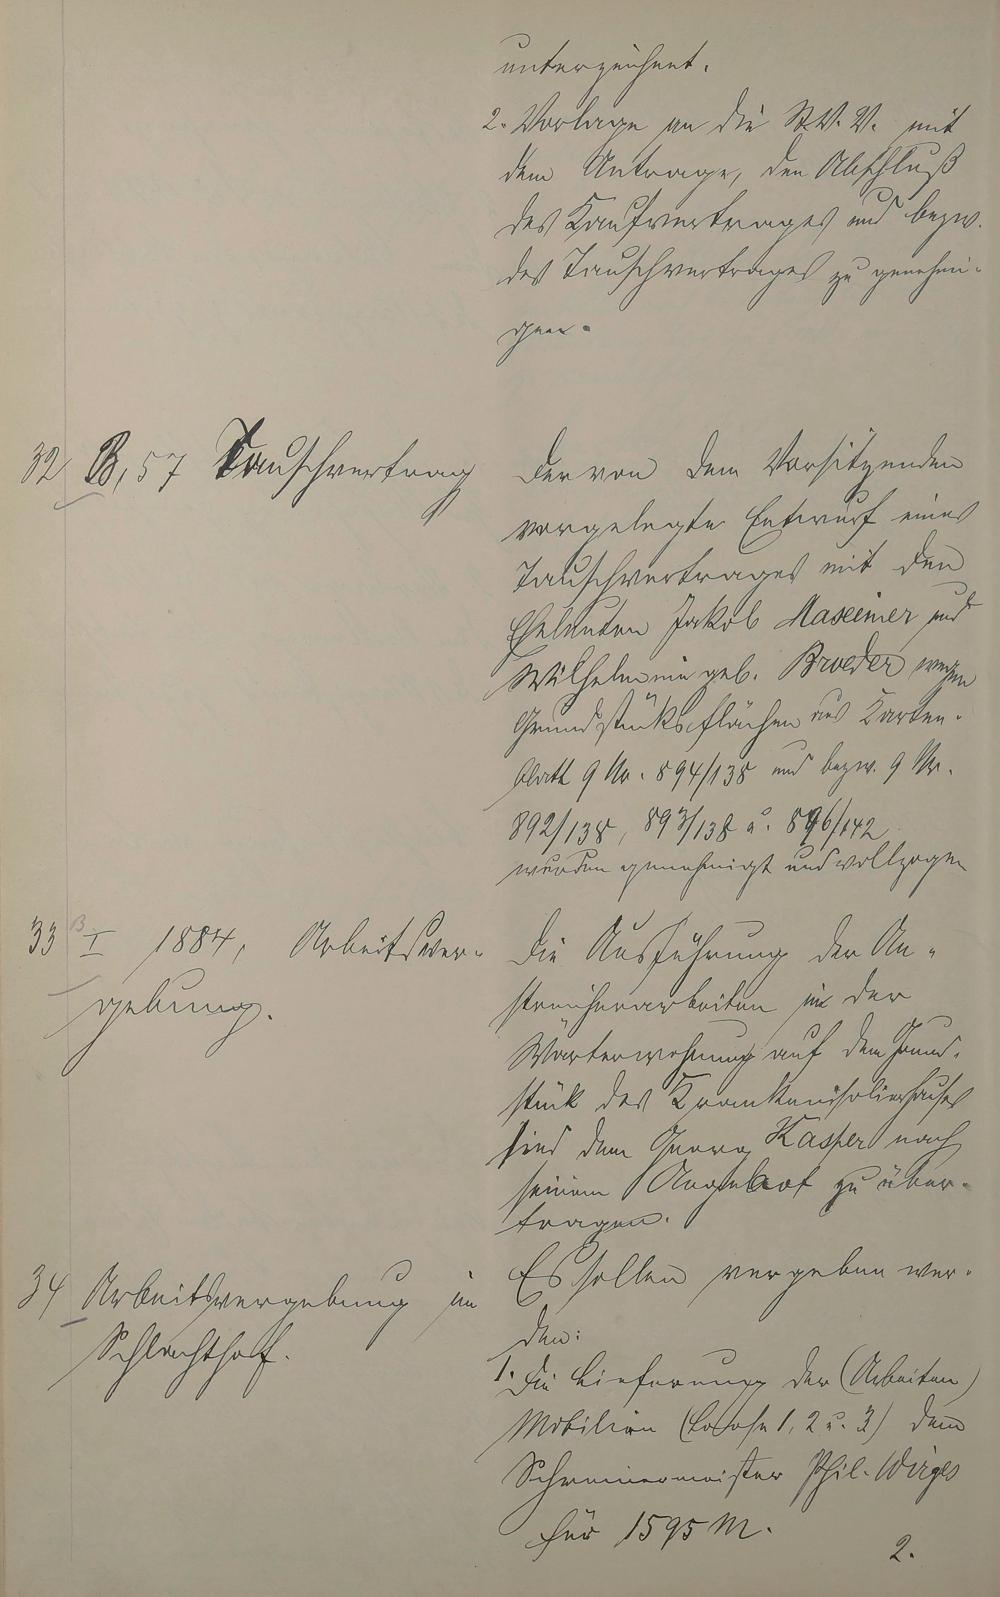 unterzeichnet.
2. Vorlage an die St. V. V. mit
dem Antrage, den Abschluß
des Kaufvertrages und bezw.
des Tauschvertrages zu genehmi-
gen.
32 B, 57 Tauschvertrag
Der von dem Vorsitzenden
vorgelegte Entwurf eines
Tauschvertrages mit den
Eheleuten Jakob und
Wilhelmine geb. Broeder wegen
Grundstücksflächen aus Karten-
blatt 9 Nr. 894/138 und bezw. 9 Nr.
892/138, 893/138 u. 896/142
wurden genehmigt und vollzogen
33 B I 1884, Arbeitsver-
gebung.
Die Ausführung der An-
streicherarbeiten in der
Wärterwohnung auf dem Grund-
stück des Krankenisolierhauses
sind dem Georg Kasper nach
seinem Angebot zu über-
tragen.
34 Arbeitsvergebung im
Schlachthof.
Es sollen vergeben wer-
den:
1. Die Lieferung der (Arbeiten)
Mobilien (Loose 1, 2 u. 3) dem
Schreinermeister Phil. Wirges
für 1595 M.
2.